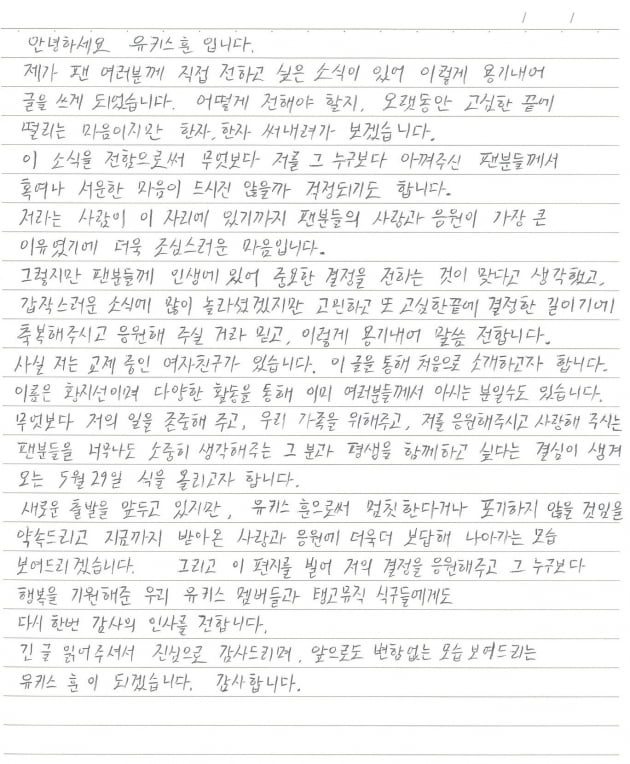 / /
안녕하세요 유키스 훈 입니다.
제가 팬 여러분께 직접 전하고 싶은 소식이 있어 이렇게 용기내어
글을 쓰게 되었습니다. 어떻게 전해야 할지, 오랫동안 고심한 끝에
떨리는 마음이지만 한자, 한자 써내려가 보겠습니다.
이 소식을 전함으로써 무엇보다 저를 그 누구보다 아껴주신 팬분들께서
혹여나 서운한 마음이 드시진 않을까 걱정되기도 합니다.
저라는 사람이 이 자리에 있기까지 팬분들의 사랑과 응원이 가장 큰
이유였기에 더욱 조심스러운 마음입니다.
그렇지만 팬분들께 인생에 있어 중요한 결정을 전하는 것이 맞다고 생각했고,
갑작스러운 소식에 많이 놀라셨겠지만 고민하고 또 고심한끝에 결정한 일이기에
축복해주시고 응원해 주실 거라 믿고, 이렇게 용기내어 말씀 전합니다.
사실 저는 교제 중인 여자친구가 있습니다. 이 글을 통해 처음으로 소개하고자 합니다.
이름은 황지선이며 다양한 활동을 통해 이미 여러분들께서 아시는 분일수도 있습니다.
무엇보다 저의 일을 존중해 주고, 우리 가족을 위해주고, 저를 응원해주시고 사랑해 주시는
팬분들을 너무나도 소중히 생각해주는 그 분과 평생을 함께하고 싶다는 결심이 생겨
오는 5월 29일 식을 올리고자 합니다.
새로운 출발을 앞두고 있지만, 유키스 훈으로써 멈칫한다거나 포기하지 않을 것임을
약속드리고 지금까지 받아온 사랑과 응원에 더욱더 보답해 나아가는 모습
보여드리겠습니다. 그리고 이 편지를 빌어 저의 결정을 응원해주고 그 누구보다
행복을 기원해준 우리 유키스 멤버들과 탱고뮤직 식구들에게도
다시 한번 감사의 인사를 전합니다.
긴 글 읽어주셔서 진심으로 감사드리며, 앞으로도 변함없는 모습 보여드리는
유키스 훈 이 되겠습니다. 감사합니다.